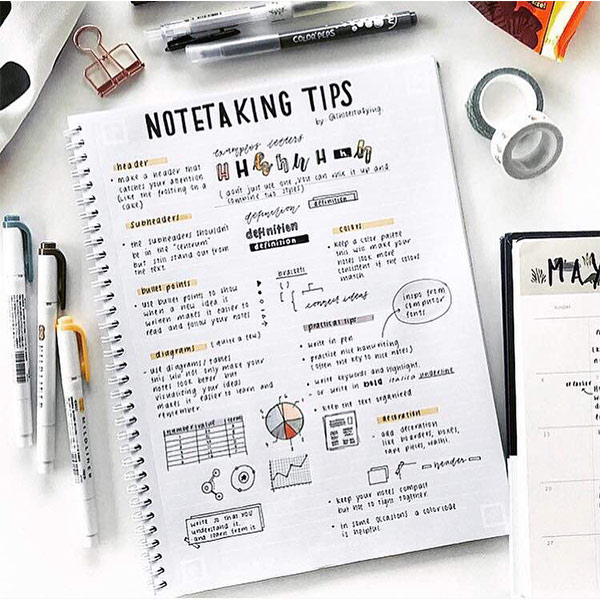 COLOR PEPS
NOTETAKING TIPS
header
examples letters
H H h h H H h
• make a header that
catches your attention
(like the frosting on a
cake)
(don't just use one, you can mix it up and
combine two styles)
Subheaders
• the subheaders shouldn't
be in the "centrum"
but still stand out from
the text.
definition
definition
definition
definition
colors
• keep a color palette
this will make your
notes look more
consistent if the colors
match
bullet points
• use bullet points to show
when a new idea is
written makes it easier to
read and follow your notes
brackets
connect ideas
inspo from
computer
fonts
practical tips
• write in pen
• practise nice handwriting
(often the key to nice notes)
• write keywords and highlight.
• or write in bold italics underline
• keep the text organized
diagrams (quite a few)
• use diagrams/tables
this will not only make your
notes look better but
visualizing your ideas
makes it easier to learn and
remember
number value term
decoration
• add decoration
like boarders, boxes,
tape pieces, washi.
header
• keep your notes compact
but not to tight together.
• in some occasions a color code
is helpful
write so that you
understand it
and learn from it
MAY